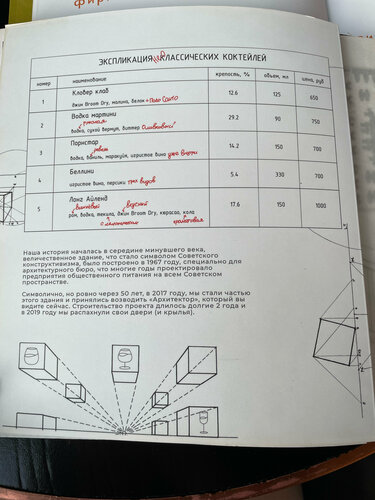 ЭКСПЛИКАЦИЯ неКЛАССИЧЕСКИХ КОКТЕЙЛЕЙ
номер наименование крепость, % объем, мл цена, руб
1 Кловер клаб 12.6 125 650
джин Broom Dry, малина, белок + Палo Санто
2 Водка мартини 29.2 90 750
грязная
водка, сухой вермут, биттер Сливовый
3 Порнстар 14.2 150 700
водка, ваниль, маракуйя, игристое вино уже внутри
4 Беллини 5.4 330 700
игристое вино, персики трёх видов
5 Лонг Айленд 17.6 150 1000
вкусный
ром, водка, текила, джин Broom Dry, кюрасао, кола
Наша история началась в середине минувшего века,
величественное здание, что стало символом Советского
конструктивизма, было построено в 1967 году, специально для
архитектурного бюро, что многие годы проектировало
предприятия общественного питания на всем Советском
пространстве.
Символично, но ровно через 50 лет, в 2017 году, мы стали частью
этого здания и принялись возводить «Архитектор», который вы
видите сейчас. Строительство проекта длилось долгие 2 года и
в 2019 году мы распахнули свои двери (и крылья).